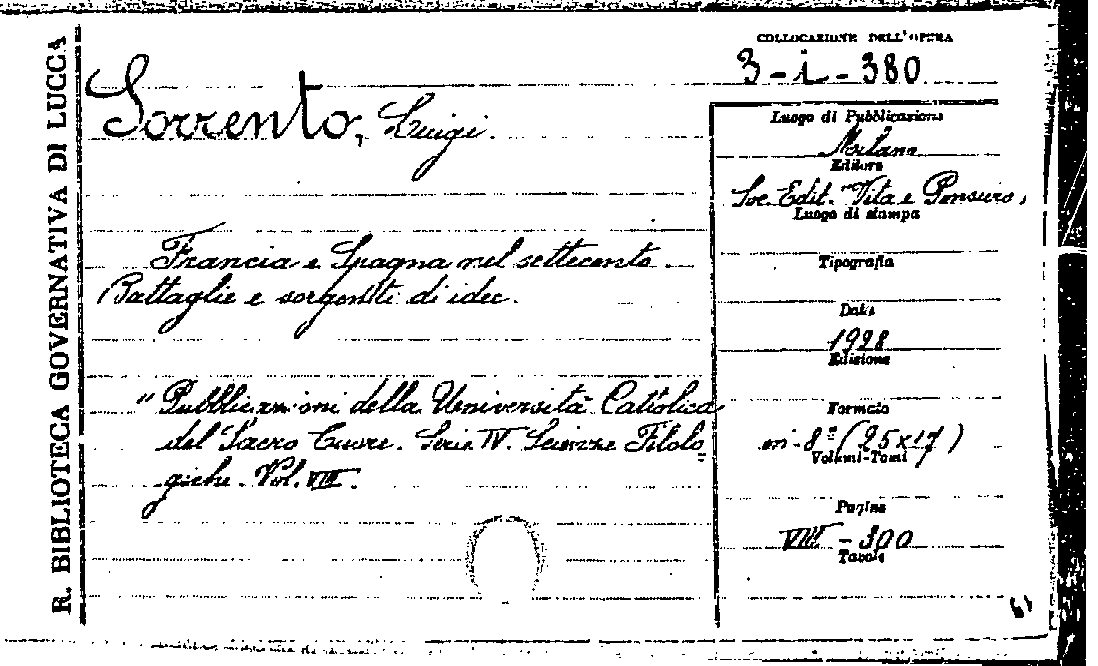 R. BIBLIOTECA GOVERNATIVA DI LUCCA
COLLOCAZIONE DELL'OPERA
3-i-380
Sorrento, Luigi.
Francia e Spagna nel settecento.
Battaglie e sorgenti di idee.
"Pubblicazioni della Università Cattolica
del Sacro Cuore. Serie IV. Scienze Filolo
giche. Vol. VIII.
Luogo di Pubblicazione
Milano
Editore
Soc. Edit. "Vita e Pensiero,
Luogo di stampa
Tipografia
Data
1928
Edizione
Formato
in-8º (25x17)
Volumi-Tomi
Pagine
VIII - 300
Tavole